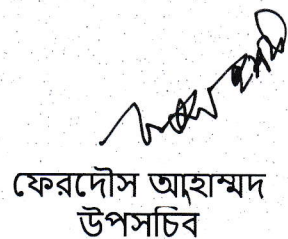 ফেরদৌস আহাম্মদ
উপসচিব